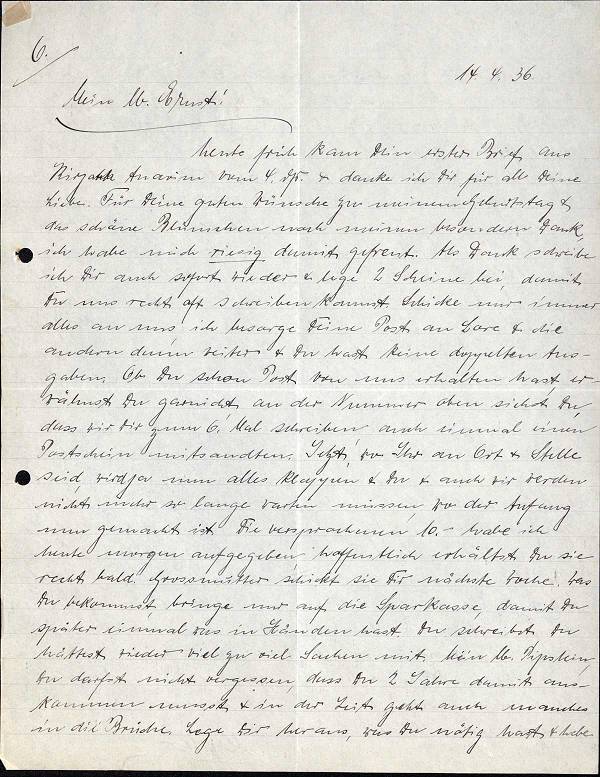 6.
14. 4. 36.
Mein lb. Ernst!
heute früh kam Dein erster Brief aus
Kirjath Anavim vom 4. ds. & danke ich Dir für all Deine
Liebe. Für Deine guten Wünsche zu meinem Geburtstag &
das schöne Blümchen noch meinen besondern Dank,
ich habe mich riesig damit gefreut. Als Dank schreibe
ich Dir auch sofort wieder & lege 2 Scheine bei, damit
Du uns recht oft schreiben kannst. Schicke nur immer
alles an uns, ich besorge Deine Post an Lore & die
andern dann weiter & Du hast keine doppelten Aus-
gaben. Ob Du schon Post von uns erhalten hast er-
wähnst Du garnicht, an der Nummer oben siehst Du,
dass wir Dir zum 6. Mal schreiben auch einmal einen
Postschein mitsandten. Jetzt, wo Ihr an Ort & Stelle
seid, wird ja nun alles klappen & Du & auch wir werden
nicht mehr so lange warten müssen, wo der Anfang
nun gemacht ist. Die versprochenen 10.- habe ich
heute morgen aufgegeben, hoffentlich erhältst Du sie
recht bald. Grossmutter schickt sie Dir nächste Woche. Was
Du bekommst, bringe nur auf die Sparkasse, damit Du
später einmal was in Händen hast. Du schreibst, Du
hättest wieder viel zu viel Sachen mit. Mein lb.
Du darfst nicht vergessen, dass Du 2 Jahre damit aus-
kommen musst & in der Zeit geht auch manches
in die Brüche. Lege Dir heraus, was Du nötig hast & hebe